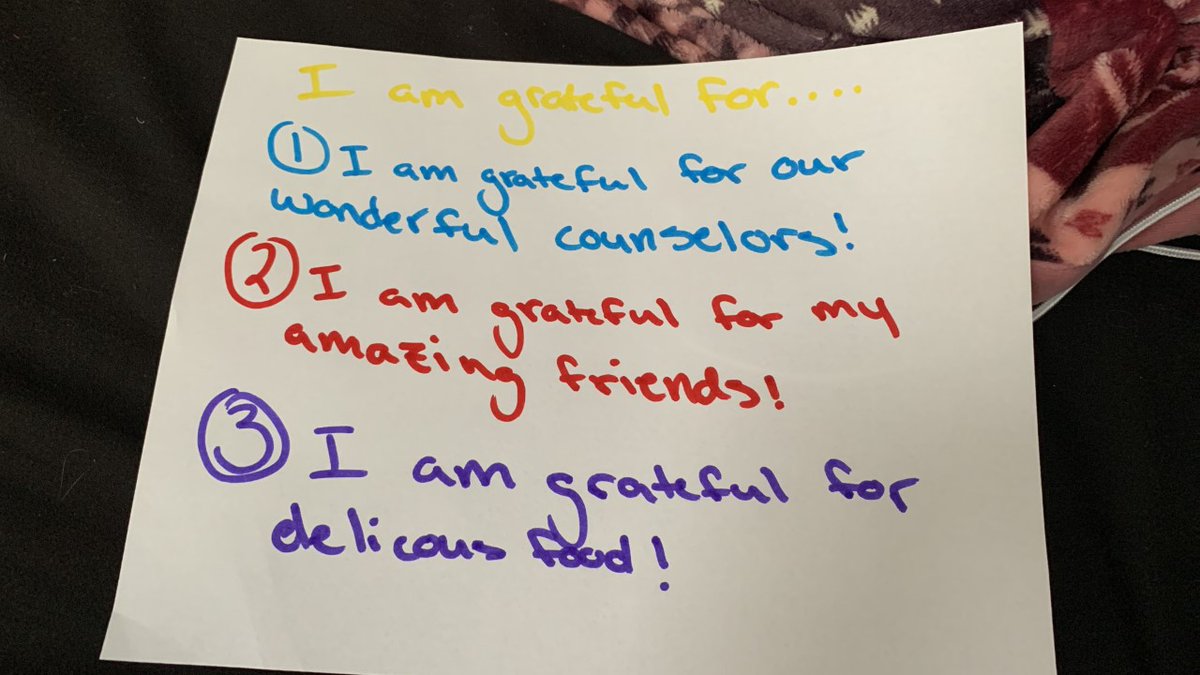 I am grateful for....
① I am grateful for our
wonderful counselors!
② I am grateful for my
amazing friends!
③ I am grateful for
delicous food!